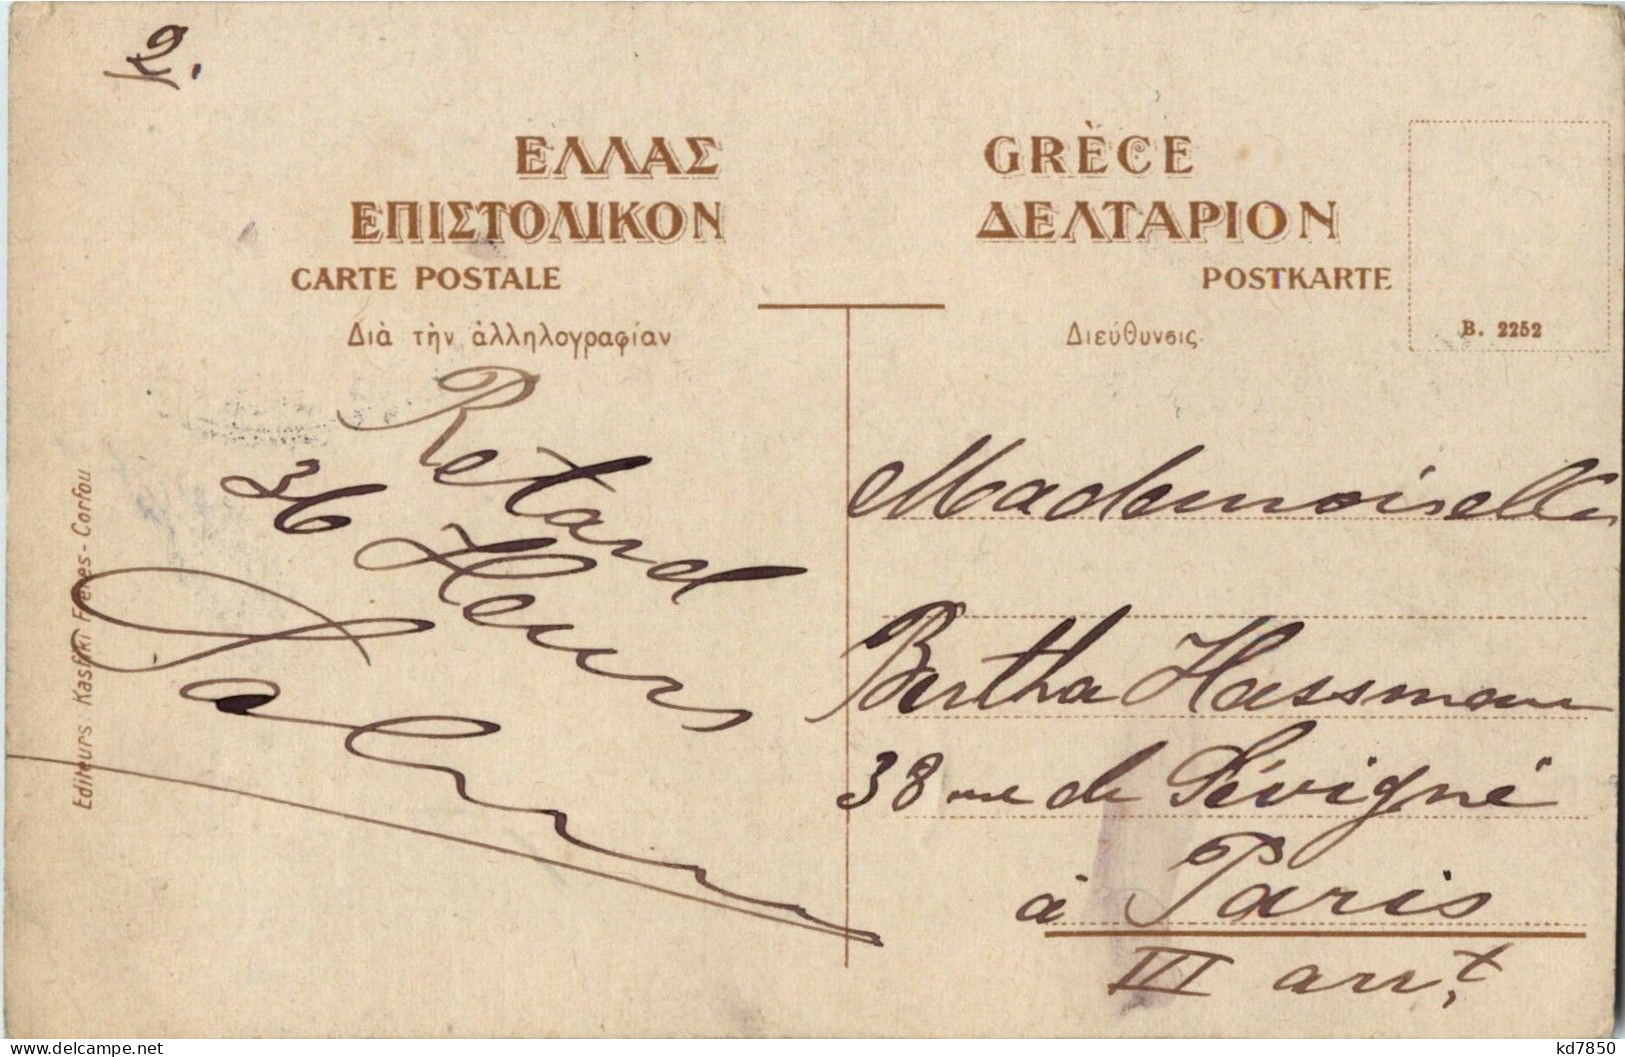 2.
ΕΛΛΑΣ GRÈCE
ΕΠΙΣΤΟΛΙΚΟΝ ΔΕΛΤΑΡΙΟΝ
CARTE POSTALE POSTKARTE
Διὰ τὴν ἀλληλογραφίαν
Διεύθυνσις
B. 2252
Retard
36 Heures
Editeurs Kasfiki Frères - Corfou
Mademoiselle
Bertha Hassmann
38 rue de Sévigné
à Paris
III arr.t
kd7850